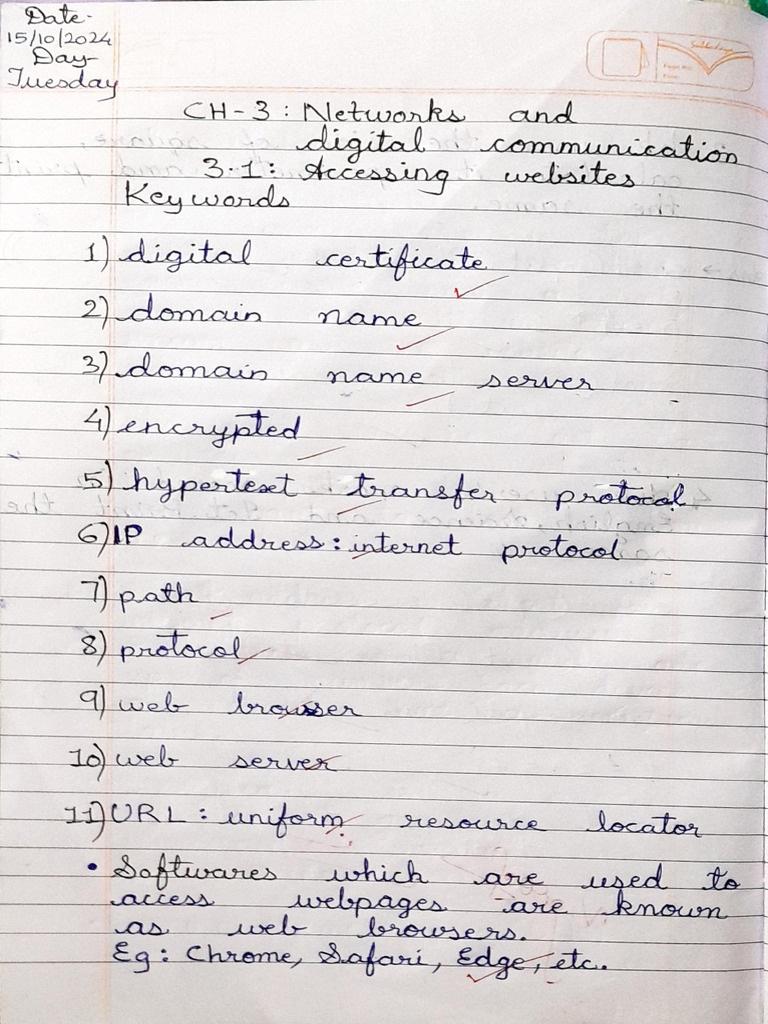 Date-
15/10/2024
Day-
Tuesday
CH-3: Networks and
digital communication
3.1: Accessing websites
Keywords
1) digital certificate
2) domain name
3) domain name server
4) encrypted
5) hypertext transfer protocol
6) IP address: internet protocol
7) path
8) protocol
9) web browser
10) web server
11) URL: uniform resource locator
• Softwares which are used to
access webpages are known
as web browsers.
Eg: Chrome, Safari, Edge, etc.